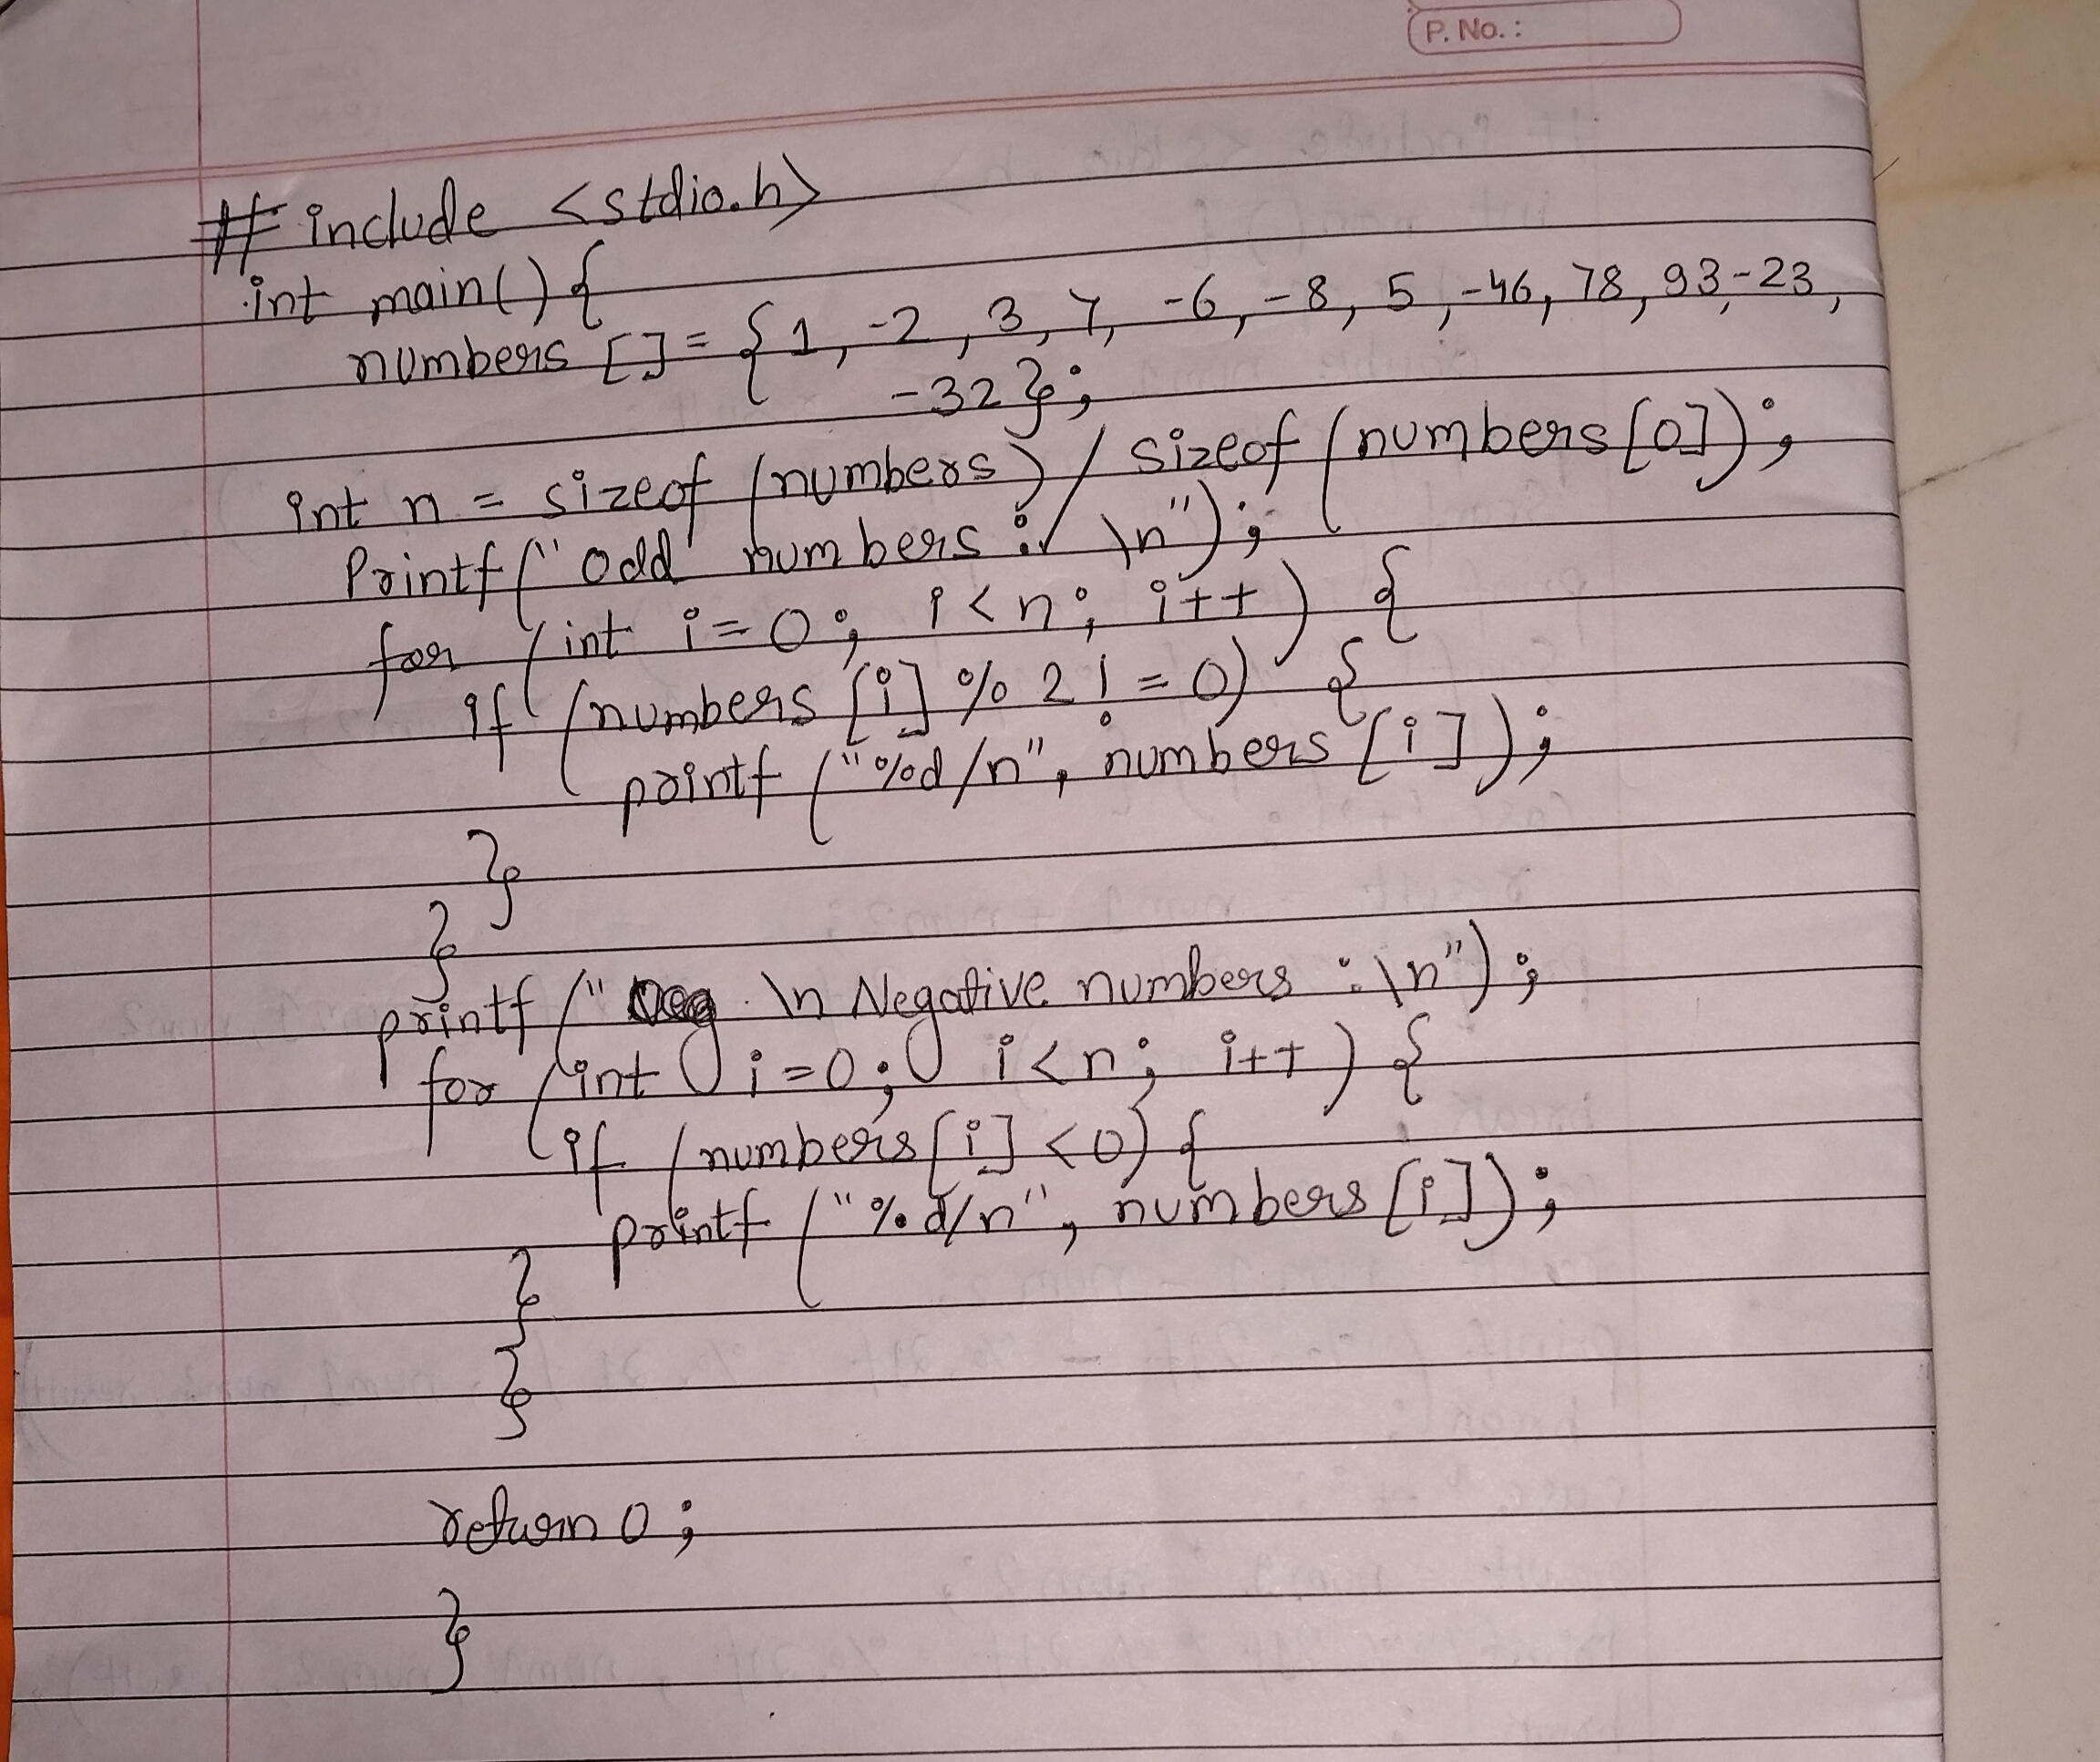 P. No. :
# include <stdio.h>
int main() {
numbers [] = { 1, -2, 3, 7, -6, -8, 5, -46, 78, 93, -23,
-32 };
int n = sizeof (numbers) / sizeof (numbers [0]);
Printf (" Odd numbers : \n");
for (int i = 0; i < n; i++) {
if (numbers [i] % 2 ! = 0) {
printf ("%d/n", numbers [i]);
}
}
printf (" \n Negative numbers : \n");
for (int i = 0; i < n; i++) {
if (numbers [i] < 0) {
printf ("%d/n", numbers [i]);
}
}
return 0;
}